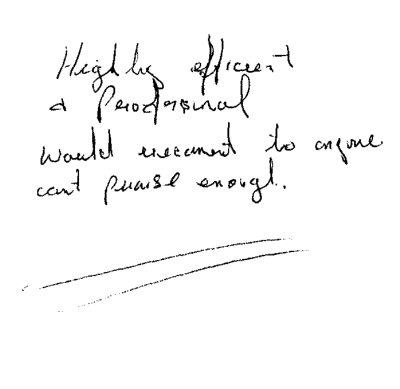 Highly efficient
& Proofessional
would reccomend to anyone
cant praise enough.